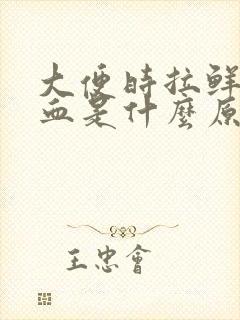 大便時拉鮮
血是什麼原
王忠會